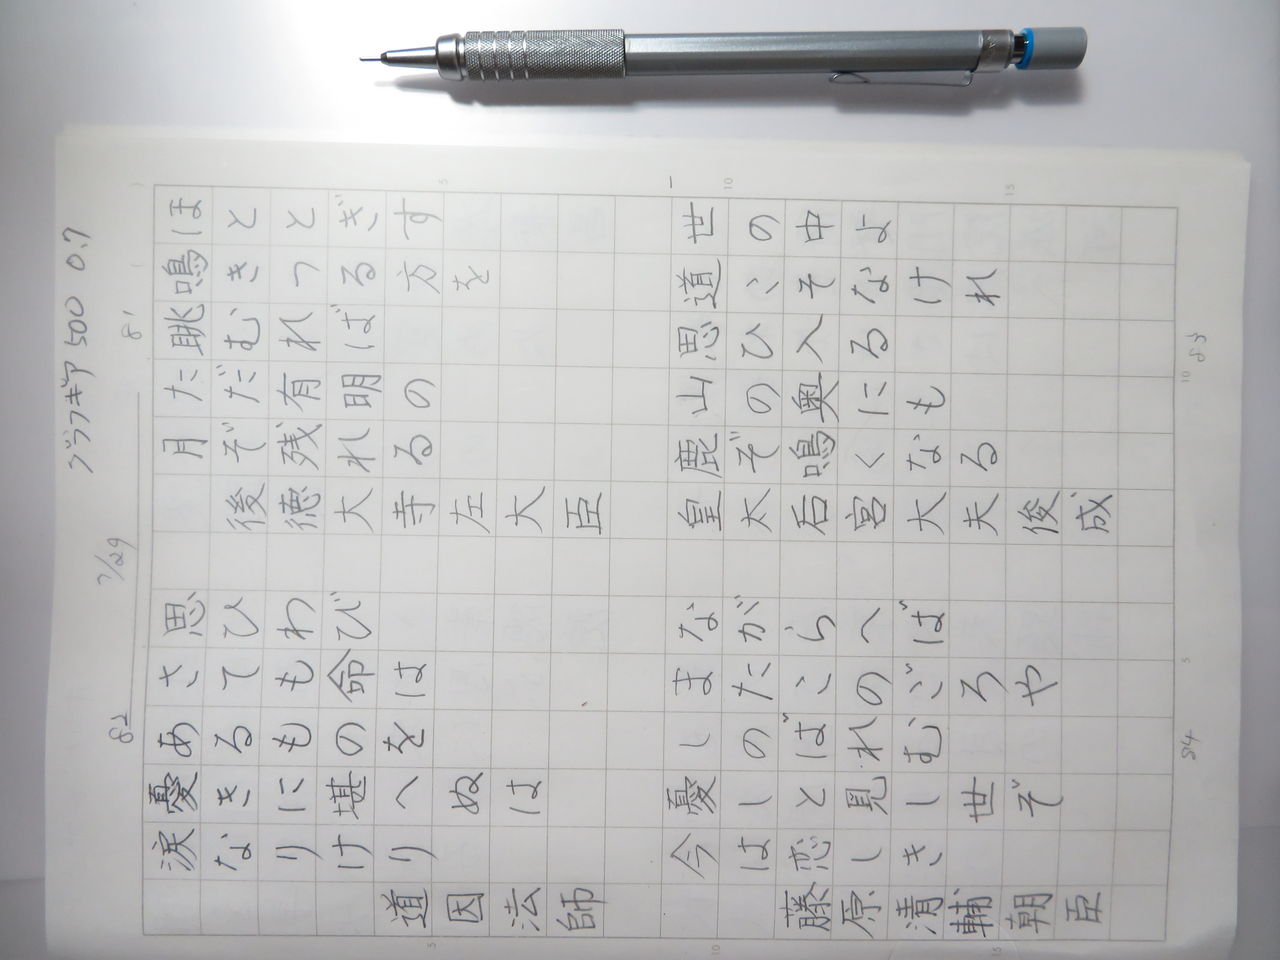 グラフギア500 0.7
7/29
81
ほととぎす
鳴きつる方を
眺むれば
ただ有明の
月ぞ残れる
後徳大寺左大臣
82
思ひわび
さても命は
あるものを
憂きに堪へぬは
涙なりけり
道因法師
83
世の中よ
道こそなけれ
思ひ入る
山の奥にも
鹿ぞ鳴くなる
皇太后宮大夫俊成
84
ながらへば
またこのごろや
しのばれむ
憂しと見し世ぞ
今は恋しき
藤原清輔朝臣